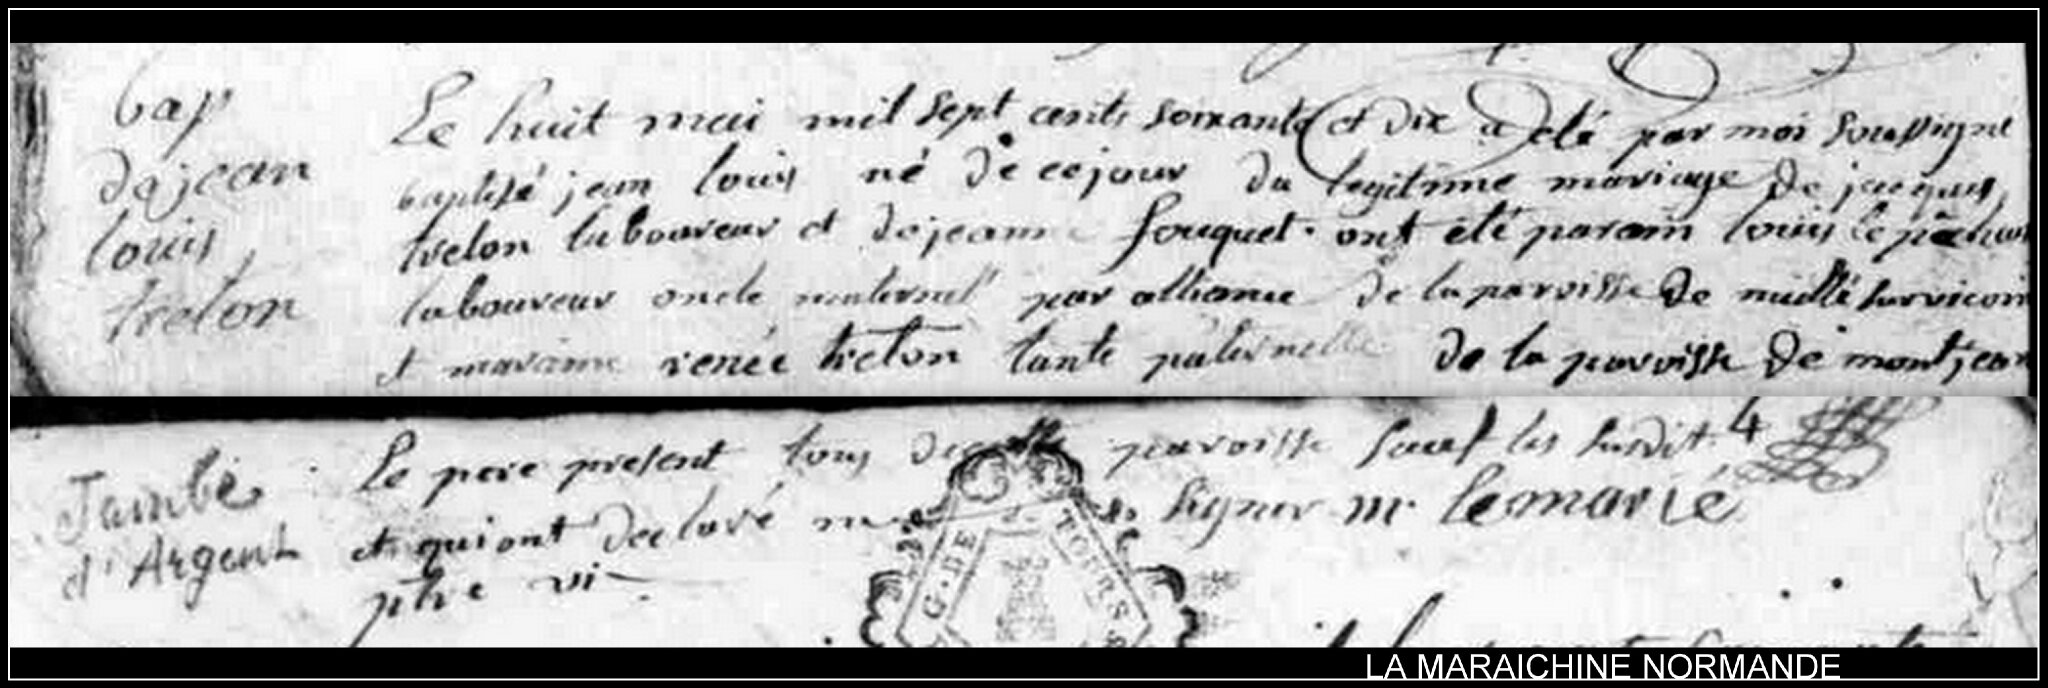 bap
de jean
louis
treton
Le huit mai mil sept cents soixante et dix a eté par moi soussigné
baptisé jean louis né de ce jour du legitime mariage de jacques
treton laboureur et de jeanne fouquet. ont eté parain louis le
laboureur oncle maternel par alliance de la paroisse de nuillé survicoin
et maraine renée treton tante paternelle de la paroisse de montjean
4
Jambe
d'Argent
le pere present tous de paroisse sauf les susdit
et qui ont declaré ne signer m. lemarié
ptre vi
G. DE TOURS
LA MARAICHINE NORMANDE